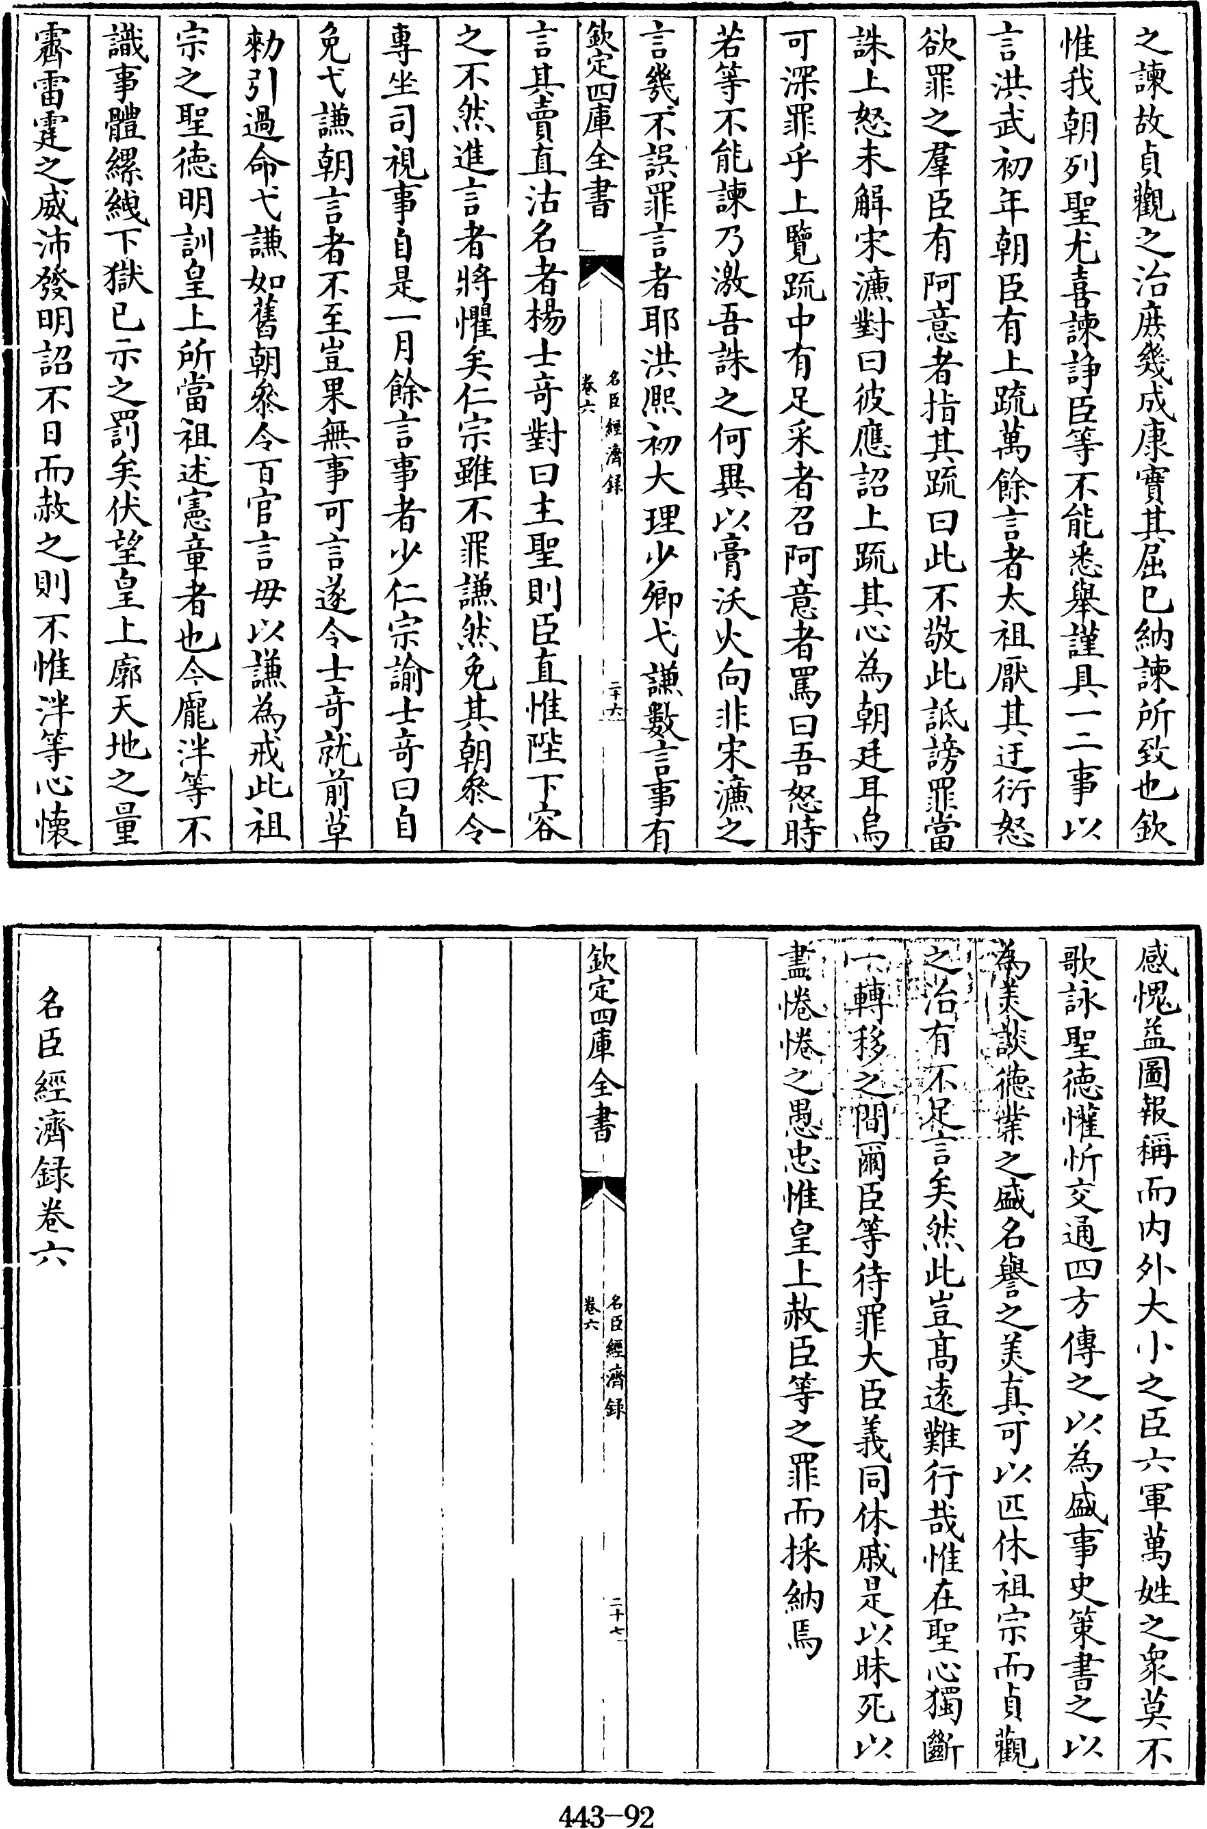 之諫故貞觀之治庶幾成康實其屈已納諫所致也欽
惟我朝列聖尤喜諫諍臣等不能悉舉謹具一二事以
言洪武初年朝臣有上疏萬餘言者太祖厭其迂衍怒
欲罪之羣臣有阿意者指其疏曰此不敬此詆謗罪當
誅上怒未解宋濂對曰彼應詔上疏其心為朝廷耳烏
可深罪乎上覽疏中有足采者召阿意者罵曰吾怒時
若等不能諫乃激吾誅之何異以膏沃火向非宋濂之
言幾不誤罪言者耶洪熙初大理少卿弋謙數言事有
欽定四庫全書
名臣經濟録
卷六
二十六
言其賣直沽名者楊士竒對曰主聖則臣直惟陛下容
之不然進言者將懼矣仁宗雖不罪謙然免其朝叅令
專坐司視事自是一月餘言事者少仁宗諭士竒曰自
免弋謙朝言者不至豈果無事可言遂令士竒就前草
勅引過命弋謙如舊朝叅令百官言毋以謙為戒此祖
宗之聖徳明訓皇上所當祖述憲章者也今龎泮等不
識事體縲絏下獄已示之罰矣伏望皇上廓天地之量
霽雷霆之威沛發明詔不日而赦之則不惟泮等心懐
感愧益圖報稱而内外大小之臣六軍萬姓之衆莫不
歌詠聖徳懽忻交通四方傳之以為盛事史策書之以
為美談徳業之盛名譽之美真可以匹休祖宗而貞觀
之治有不足言矣然此豈髙遠難行哉惟在聖心獨斷
一轉移之間爾臣等待罪大臣義同休戚是以昧死以
盡惓惓之愚忠惟皇上赦臣等之罪而採納焉
欽定四庫全書
名臣經濟録
卷六
二十七
名臣經濟録卷六
443-92